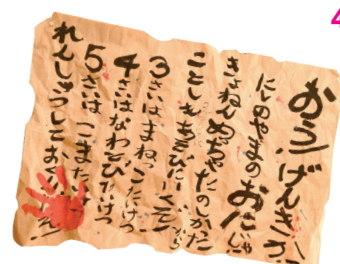 おう!げんきか!
にしのやまのおにじゃ
きょねんめちゃたのしかった
ことしもあそびにいくぞ!
3さいはまねっこたいけつ
4さいはなわとびたいけつ
5さいは こままわし
れんしゅうしておくんじゃ!
4